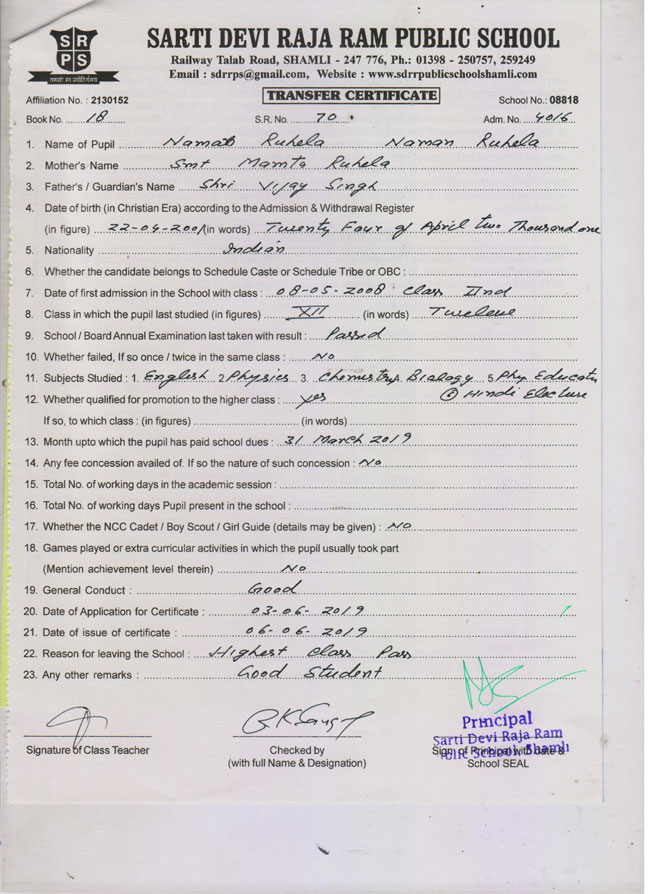 SARTI DEVI RAJA RAM PUBLIC SCHOOL
S R
P S
तमसो मा ज्योतिर्गमय
Railway Talab Road, SHAMLI - 247 776, Ph.: 01398 - 250757, 259249
Email : sdrrps@gmail.com, Website : www.sdrrpublicschoolshamli.com
Affiliation No. : 2130152 TRANSFER CERTIFICATE School No.: 08818
Book No. 18 S.R. No. 70 Adm. No. 4016
1. Name of Pupil Ruhela Naman Ruhela
2. Mother's Name Smt Mamta Ruhela
3. Father's / Guardian's Name Shri Vijay Singh
4. Date of birth (in Christian Era) according to the Admission & Withdrawal Register
(in figure) 22-04-2001 (in words) Twenty Four of April two Thousand one
5. Nationality Indian
6. Whether the candidate belongs to Schedule Caste or Schedule Tribe or OBC :
7. Date of first admission in the School with class : 08-05-2008 Class IInd
8. Class in which the pupil last studied (in figures) XII (in words) Tweleve
9. School / Board Annual Examination last taken with result : Passed
10. Whether failed, If so once / twice in the same class : No
11. Subjects Studied : 1. English 2 Physics 3. Chemistry Bialagy 5 Phy Educatn
12. Whether qualified for promotion to the higher class : yes ⑥ Hindi Elective
If so, to which class : (in figures) (in words)
13. Month upto which the pupil has paid school dues : 31 March 2019
14. Any fee concession availed of. If so the nature of such concession : No
15. Total No. of working days in the academic session :
16. Total No. of working days Pupil present in the school :
17. Whether the NCC Cadet / Boy Scout / Girl Guide (details may be given) : No
18. Games played or extra curricular activities in which the pupil usually took part
(Mention achievement level therein) No
19. General Conduct : Good
20. Date of Application for Certificate : 03-06-2019
21. Date of issue of certificate : 06-06-2019
22. Reason for leaving the School : Highest Class Pass
23. Any other remarks : Good Student
Principal
Sarti Devi Raja Ram
Public School, Shamli
Signature of Class Teacher Checked by Sign of Principal with date &
(with full Name & Designation) School SEAL